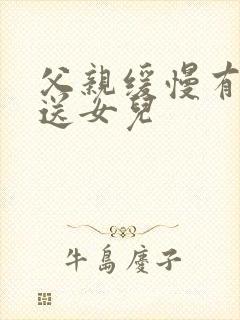 父親緩慢有
送女兒
牛島慶子